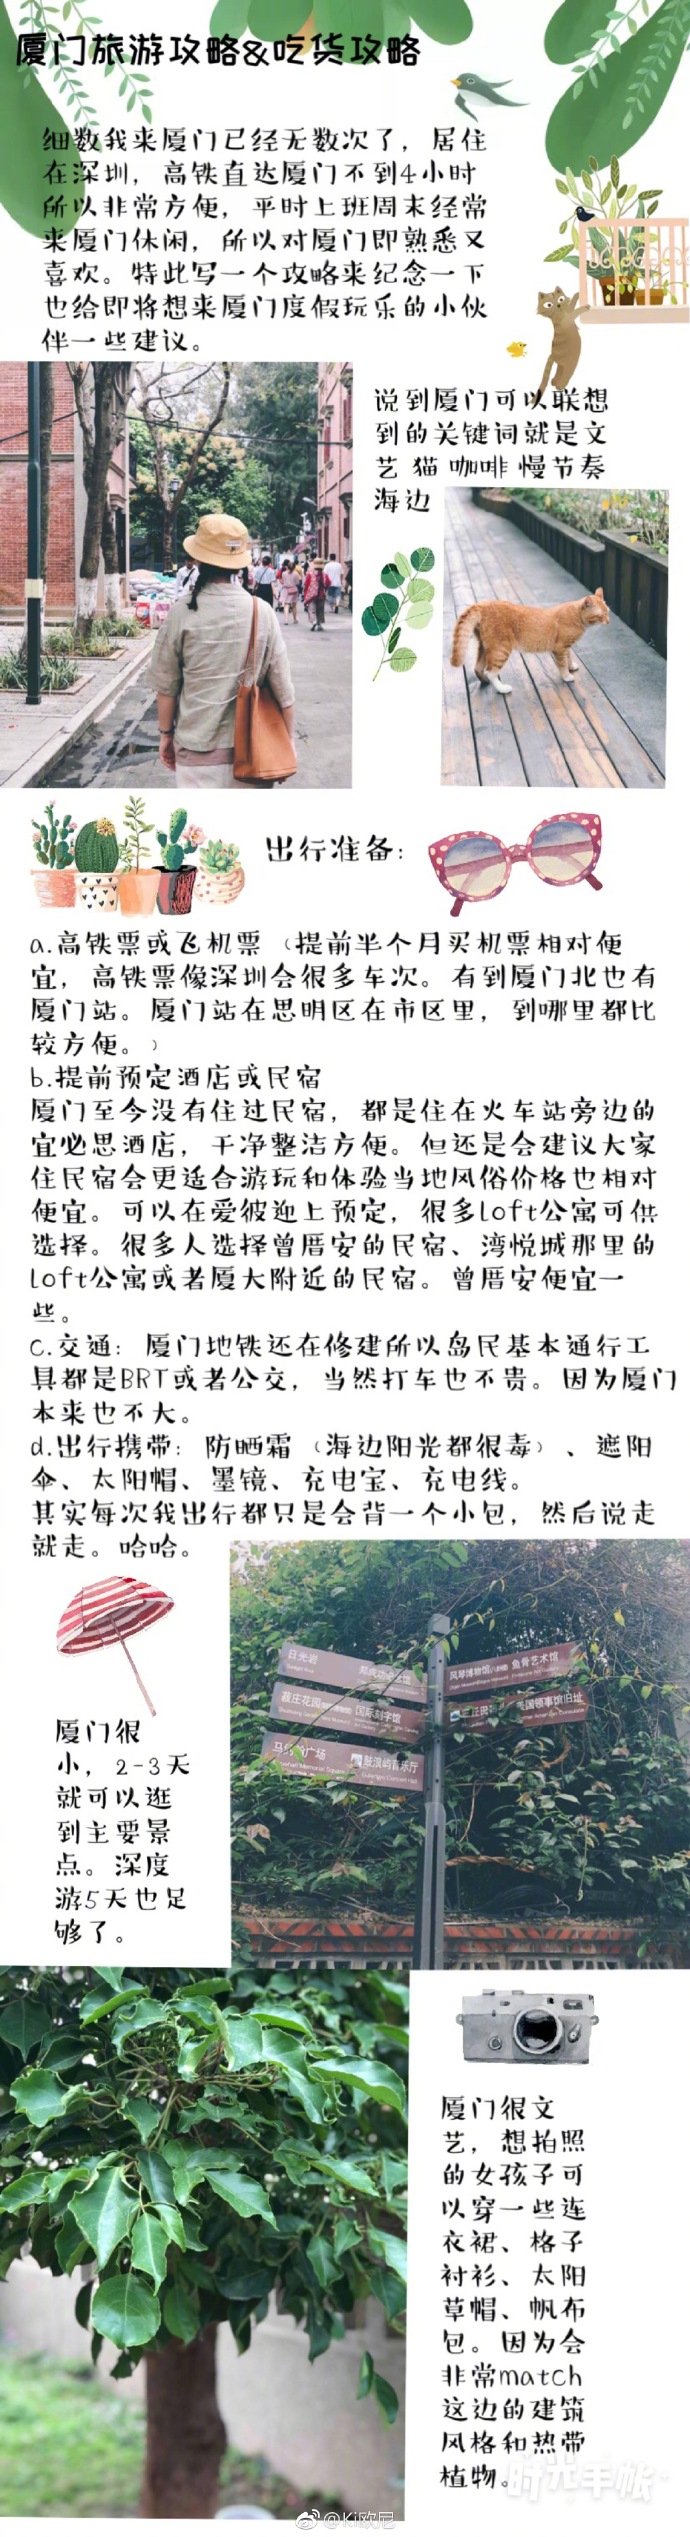 厦门旅游攻略&吃货攻略
细数我来厦门已经无数次了，居住
在深圳，高铁直达厦门不到4小时
所以非常方便，平时上班周末经常
来厦门休闲，所以对厦门即熟悉又
喜欢。特此写一个攻略来纪念一下
也给即将想来厦门度假玩乐的小伙
伴一些建议。
说到厦门可以联想
到的关键词就是文
艺 猫 咖啡 慢节奏
海边
出行准备：
a.高铁票或飞机票（提前半个月买机票相对便
宜，高铁票像深圳会很多车次。有到厦门北也有
厦门站。厦门站在思明区在市区里，到哪里都比
较方便。）
b.提前预定酒店或民宿
厦门至今没有住过民宿，都是住在火车站旁边的
宜必思酒店，干净整洁方便。但还是会建议大家
住民宿会更适合游玩和体验当地风俗价格也相对
便宜。可以在爱彼迎上预定，很多Loft公寓可供
选择。很多人选择曾厝安的民宿、湾悦城那里的
Loft公寓或者厦大附近的民宿。曾厝安便宜一
些。
C.交通：厦门地铁还在修建所以岛民基本通行工
具都是BRT或者公交，当然打车也不贵。因为厦门
本来也不大。
d.出行携带：防晒霜（海边阳光都很毒）、遮阳
伞、太阳帽、墨镜、充电宝、充电线。
其实每次我出行都只是会背一个小包，然后说走
就走。哈哈。
日光岩
风琴博物馆 鱼骨艺术馆
菽庄花园 国际刻字馆
美国领事馆旧址
广场 鼓浪屿音乐厅
厦门很
小，2-3天
就可以逛
到主要景
点。深度
游5天也足
够了。
厦门很文
艺，想拍照
的女孩子可
以穿一些连
衣裙、格子
衬衫、太阳
草帽、帆布
包。因为会
非常match
这边的建筑
风格和热带
植物。
时光手帐
@Ki欧尼